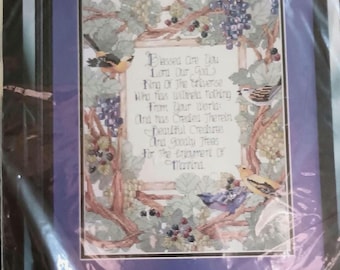 Blessed Are You
Lord Our God
King Of The Universe
Who has withheld Nothing
From Your World
And has Created Therein
Beautiful Creatures
And Goodly Trees
For the Enjoyment Of
Mankind